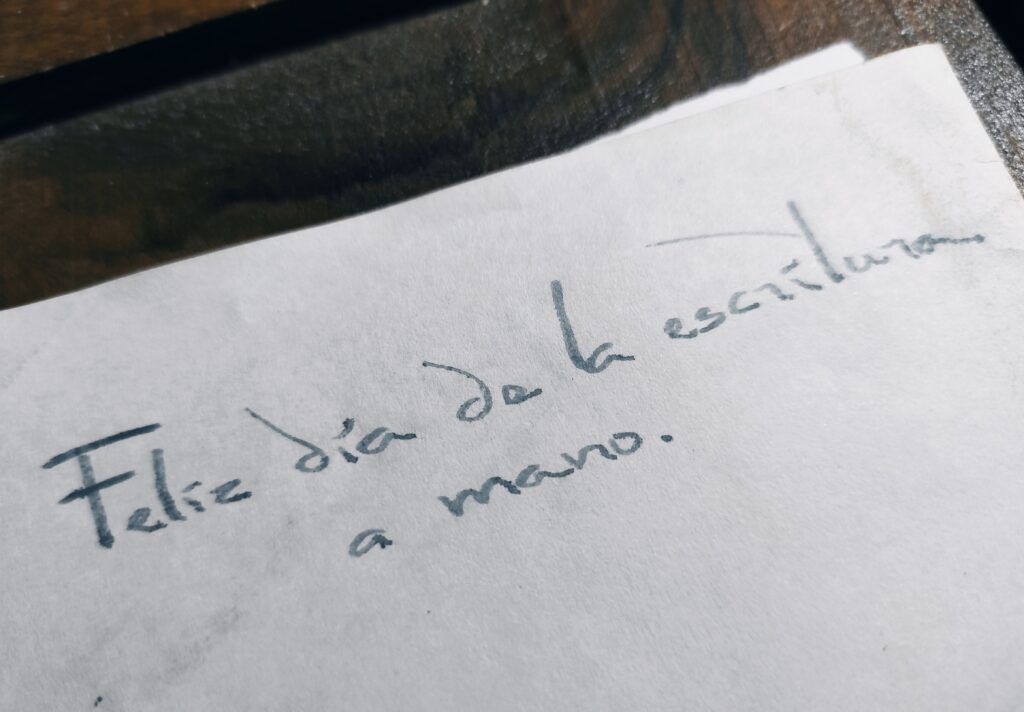 Feliz día de la escritura
a mano.